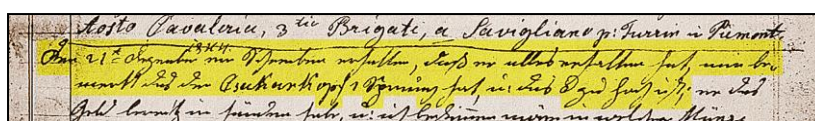 Aosto Cavaleria, 3 tie Brigate, a Savigliano p: Turrin in Piemont.
Am 21t Dezember 1844 ein Schreiben erhalten, daß er alles erhalten hat, nur be¬
merkt das der Csukankopf 1 Sprung hat, u: das zu ist; er das
Geld in hab, u: ich bestimmen in welcher Münze